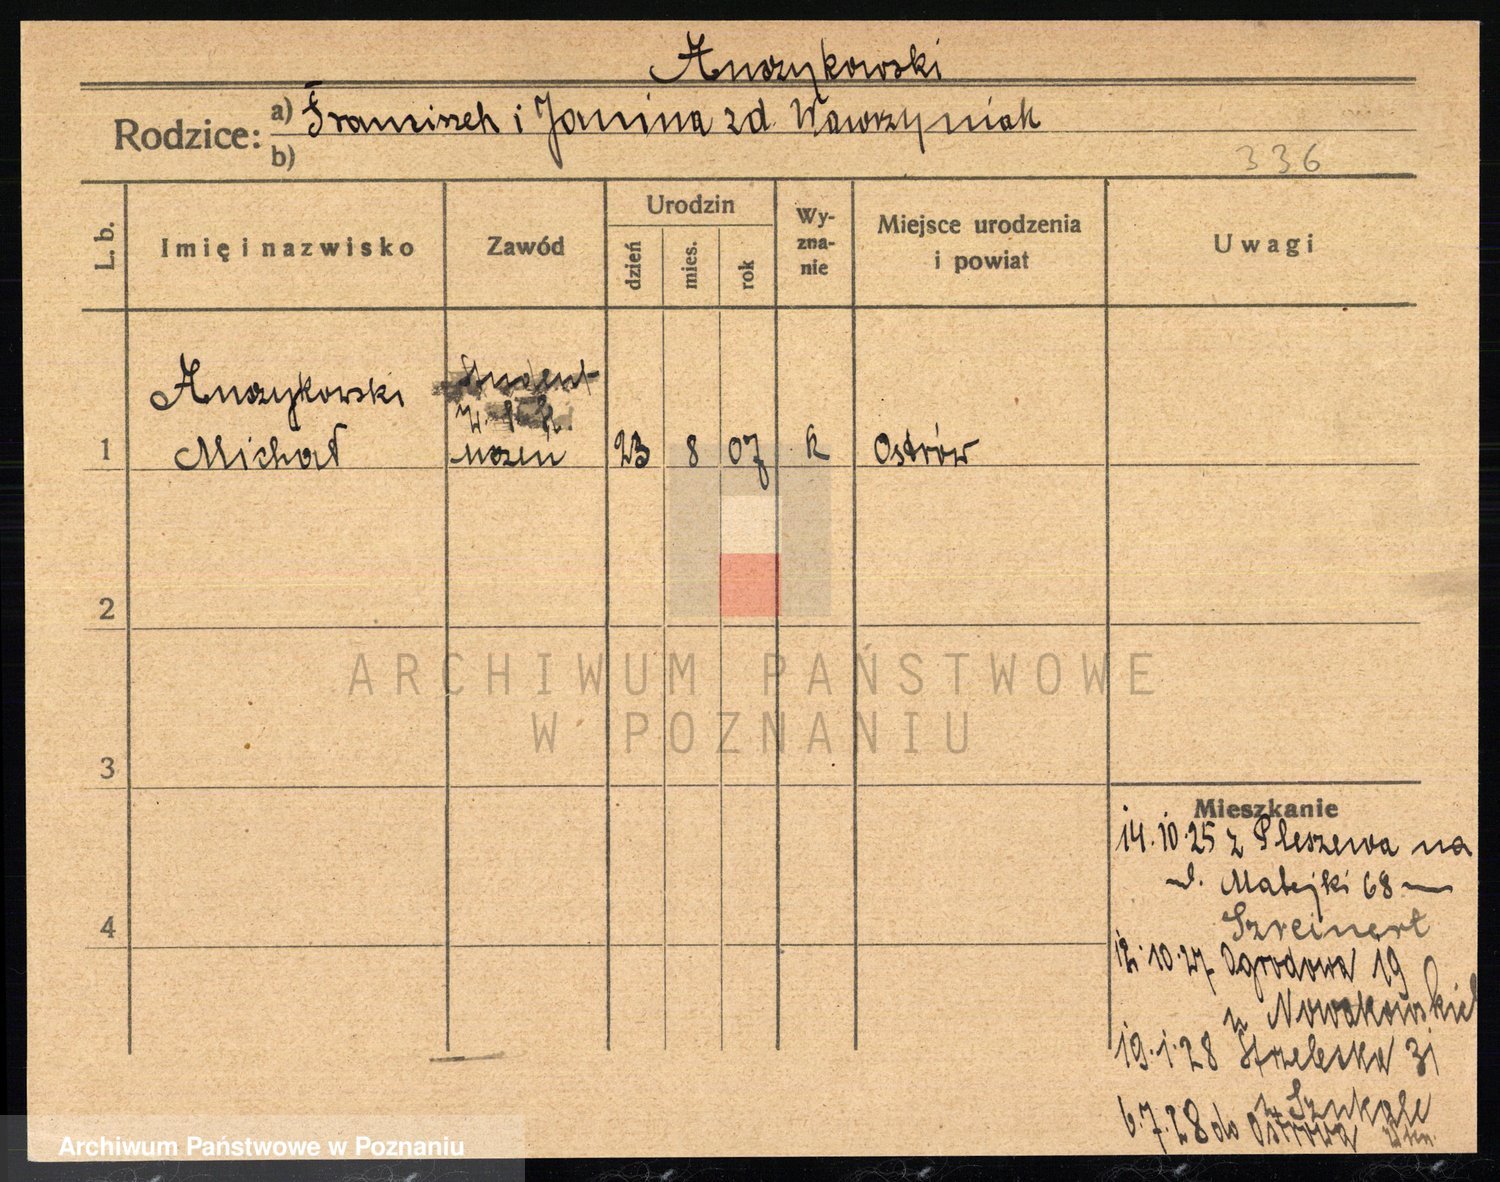 Anszykowski
Rodzice: a) Franciszek i Janina zd. Wawrzyniak
b)
336
L. b.
Imię i nazwisko
Zawód
Urodzin
dzień
mies.
rok
Wy-
zna-
nie
Miejsce urodzenia
i powiat
Uwagi
Anszykowski
student
1 Michał uczeń 23 8 07 k Ostrów
2
3
4
ARCHIWUM PAŃSTWOWE
W POZNANIU
Mieszkanie
14.10.25 z Pleszewa na
ul. Matejki 68
Szreinert
12.10.27 Ogrodowa 19
u Nowakowskiej
19.1.28 Strzelecka 31
u Szukałe
6.7.28 do Ostrowa
Archiwum Państwowe w Poznaniu